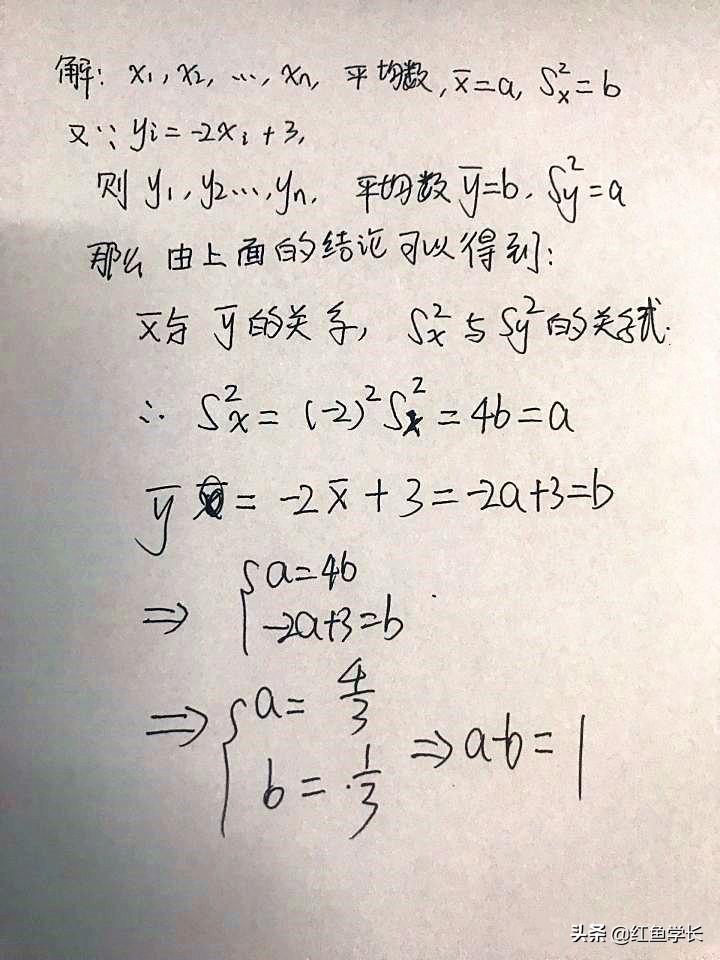 解: x₁, x₂, …, xₙ, 平均数, x̄=a, Sₓ²=b
又∵ yᵢ=-2xᵢ+3,
则 y₁, y₂…, yₙ, 平均数 ȳ=b, Sy²=a
那么由上面的结论可以得到:
x̄与 ȳ的关系, Sₓ²与Sy²的关系式.
∴ Sₓ²=(-2)²Sₓ²=4b=a
ȳ = -2x̄+3=-2a+3=b
⇒ { a=4b
-2a+3=b
⇒ { a= 4/3
b= 1/3 ⇒ a-b=1
头条 @红鱼学长